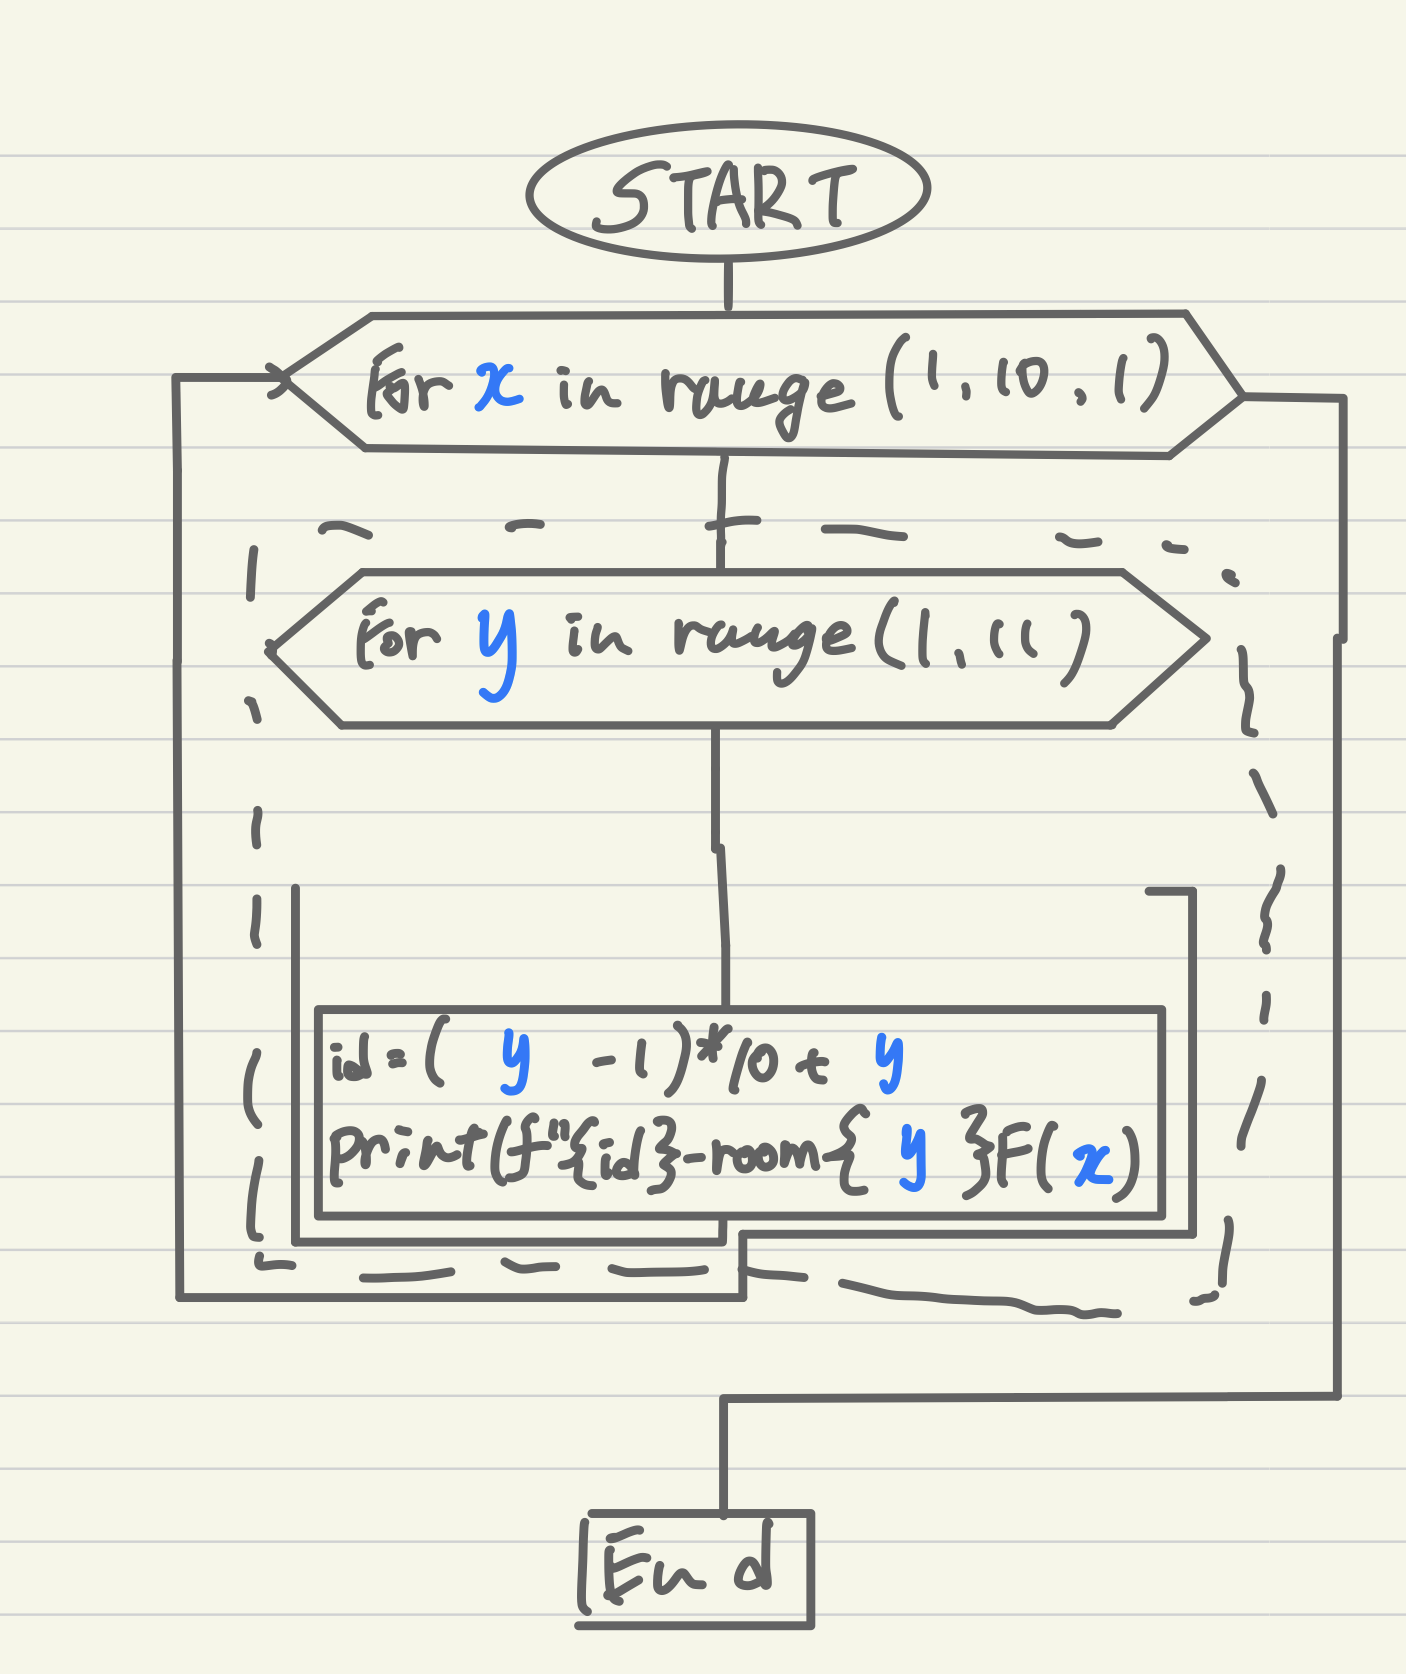 START
For x in range (1,10,1)
For y in range(1,11)
id=( y -1)*10+ y
print(f"{id}-room{ y }F(x)
End